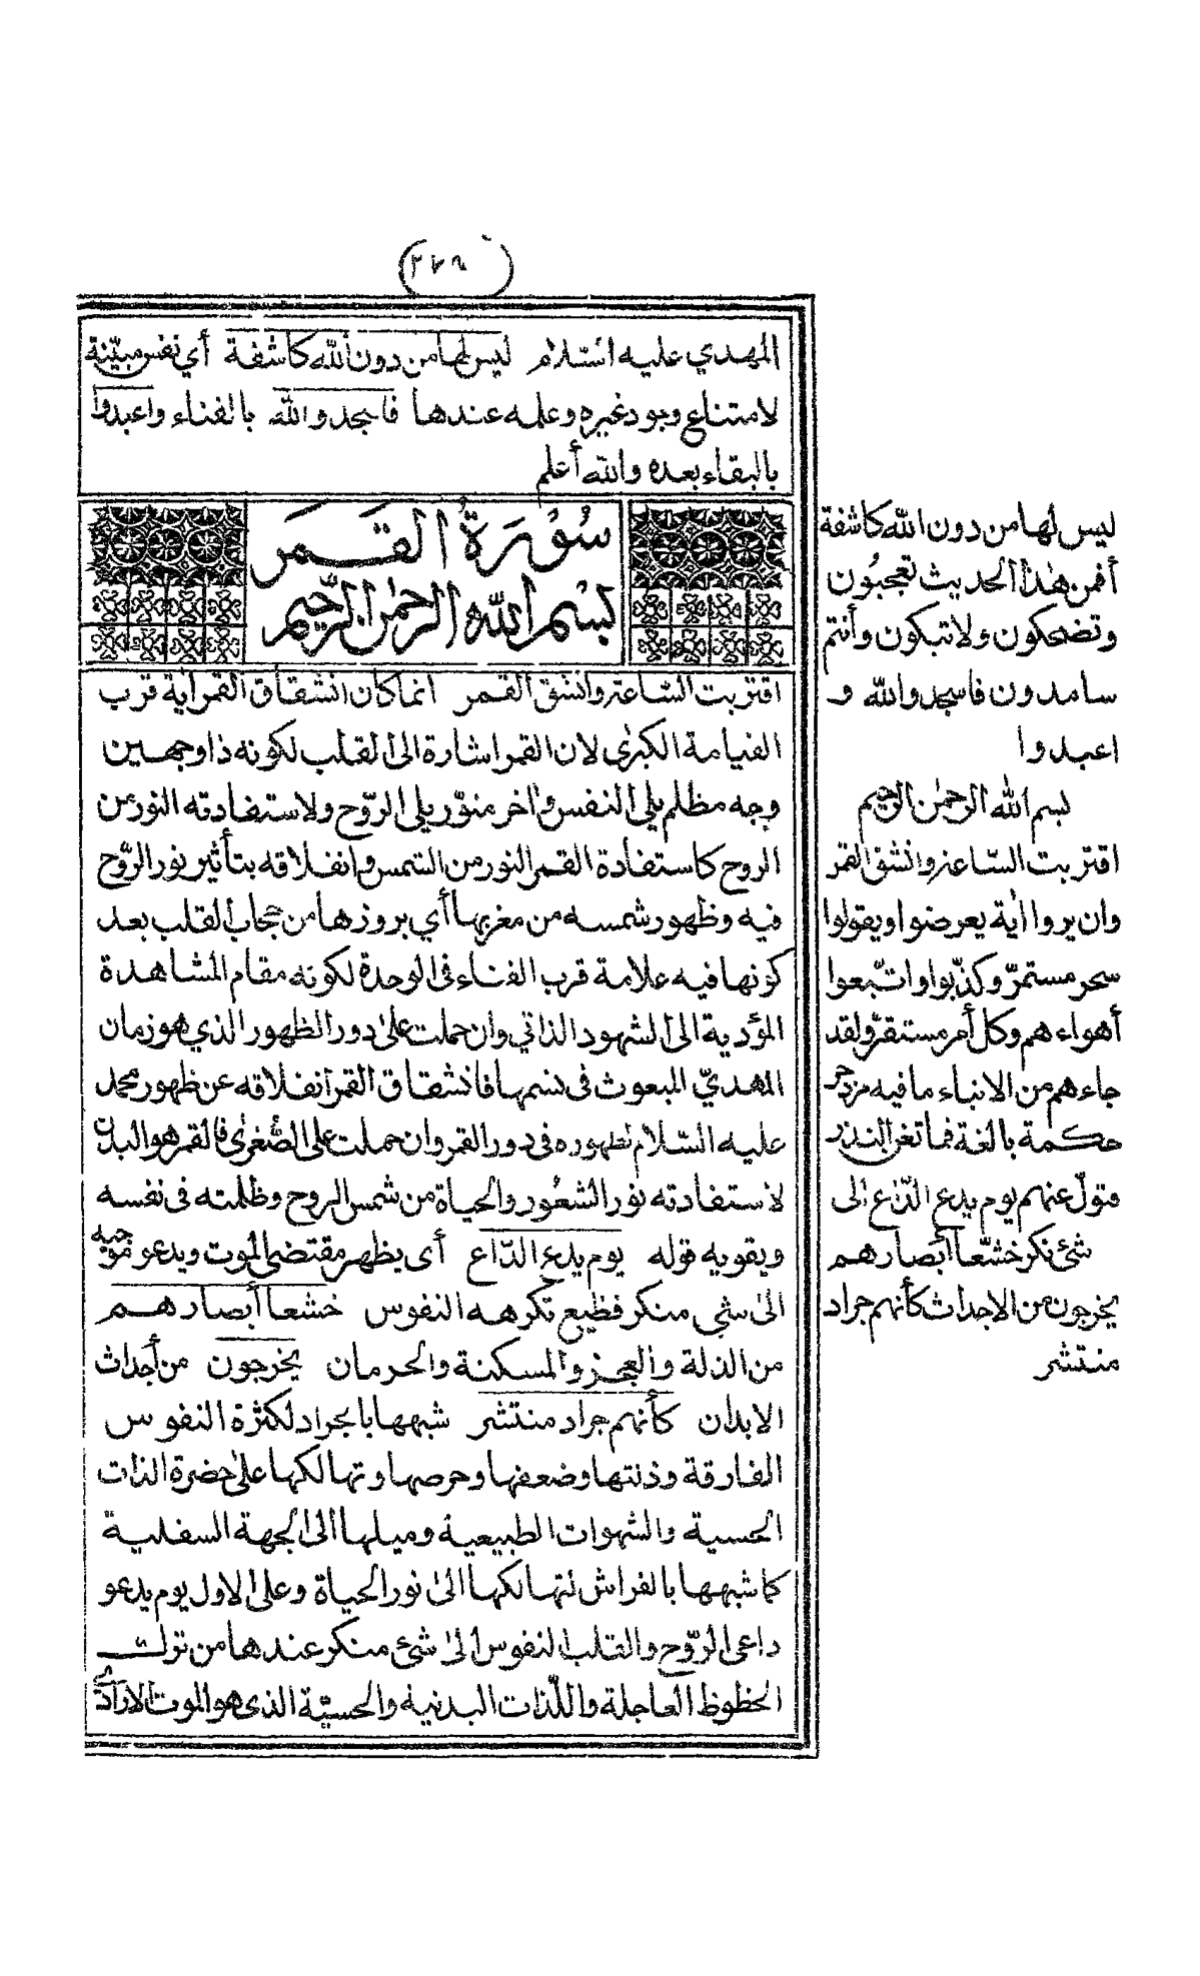 المهدي عليه السّلام ليس لها من دون الله كاشفة أي نفس مبيّنة
لامتناع وجود غيره وعلمه عندها فاسجدوا لله بالفناء واعبدوا
بالبقاء بعده والله أعلم
سُوُرَةُ القَمَر
بسم الله الرحمٰن الرّحيم
اقتربت السّاعة وانشق القمر انما كان انشقاق القمر اٰية قرب
القيامة الكبرٰى لان القمر اشارة الى القلب لكونه ذا وجهين
وجه مظلم يلي النفس واٰخر منوّر يلي الرّوح ولاستفادته النور من
الروح كاستفادة القمر النور من الشمس وانفلاقه بتأثير نور الرّوح
فيه وظهور شمسه من مغربها أي بروزها من حجاب القلب بعد
كونها فيه علامة قرب الفناء فى الوحدة لكونه مقام المشاهدة
المؤدية الى الشهود الذاتي وان حملت علىٰ دور الظهور الذي هو زمان
المهديّ المبعوث فى نسمها فانشقاق القمر انفلاقه عن ظهور محمد
عليه السّلام لظهوره فى دور القمر وان حملت على الصّغرٰى فالقمر هو البدن
لاستفادته نور الشعُور والحياة من شمس الروح وظلمته فى نفسه
ويقويه قوله يوم يدع الدّاع أى يظهر مقتضى الموت ويدعو موجبه
الىٰ شي منكر فظيع تكرهه النفوس خشعا أبصارهم
من الذلة والعجز والمسكنة والحرمان يخرجون من أجداث
الابدان كأنهم جراد منتشر شبهها بالجراد لكثرة النفوس
الفارقة وذلتها وضعفها وحرصها وتهالكها علىٰ حضرة الذات
الحسية والشهوات الطبيعية وميلها الى الجهة السفلية
كما شبهها بالفراش لتهالكها الىٰ نور الحياة وعلى الاول يوم يدعو
داعى الرّوح والقلب النفوس الىٰ شئ منكر عندها من ترك
الحظوظ العاجلة واللّذات البدنية والحسيّة الذى هو الموت الارادي
ليس لها من دون الله كاشفة
أفمن هٰذا الحديث تعجبُون
وتضحكون ولا تبكون وأنتم
سامدون فاسجدوا لله و
اعبدوا
بسم الله الرحمٰن الرحيم
اقتربت السّاعة وانشق القمر
وان يروا اٰية يعرضوا ويقولوا
سحر مستمرّ وكذّبوا واتّبعوا
أهواءهم وكل أمر مستقرّ ولقد
جاءهم من الانباء ما فيه مزدجر
حكمة بالغة فما تغن النذر
فتولّ عنهم يوم يدع الدّاع الى
شئ نكر خشّعا أبصارهم
يخرجون من الاجداث كأنهم جراد
منتشر